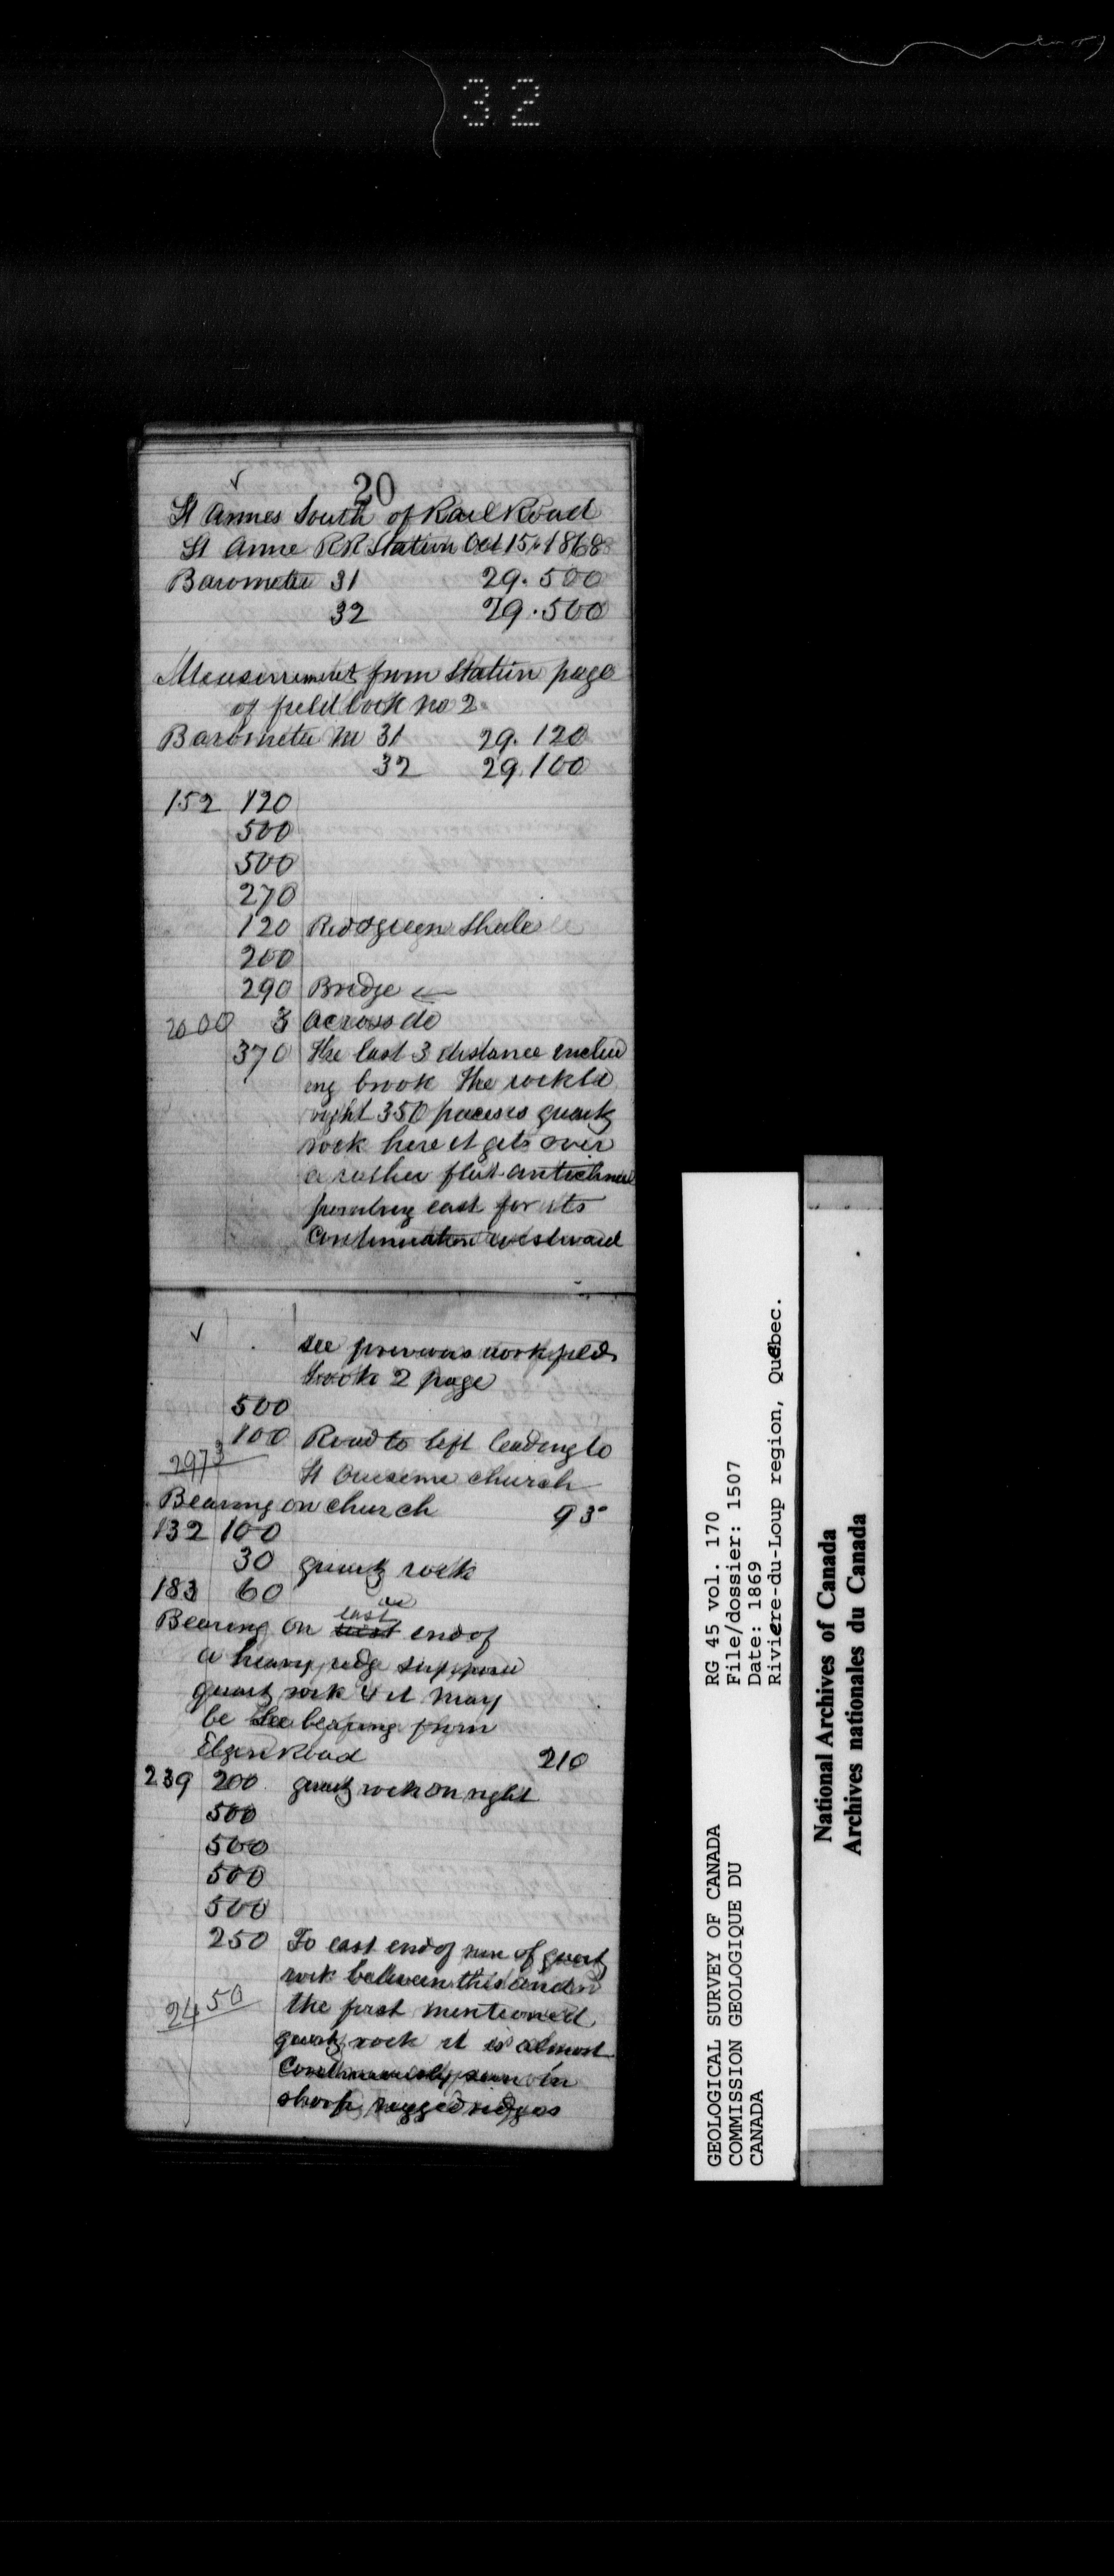 32
20
St Annes South of Rail Road
St Anne RR Station Oct 15th 1868
Barometer 31 29.500
32 29.500
Measurement from Station page
of field book no 2
Barometer M 31 29.120
32 29.100
152 120
500
500
270
120 Red & green Shale
200
290 Bridge ←
2000 3 Across do
370 The last 3 distance
ing brook The rock to
right 350 paces is quartz
rock here it gets over
a rather flat anticlinal
east for its
Continuation westward
see previous work field
book 2 page
500
100 Road to left leading to
2973 St Onesime church
Bearing on church 93°
132 100
30 quartz rock
183 60
Bearing on east end of
a heavy ridge suppose
quartz rock & it may
be the bearing from
Elgin Road 210
239 200 quartz rock on right
500
500
500
500
250 To east end of run of quartz
rock between this and
2450 the first mentioned
quartz rock it is almost
Continuously seen in
sharp rugged ridges
GEOLOGICAL SURVEY OF CANADA
COMMISSION GEOLOGIQUE DU
CANADA
RG 45 vol. 170
File/dossier: 1507
Date: 1869
Riviere-du-Loup region, Québec.
National Archives of Canada
Archives nationales du Canada